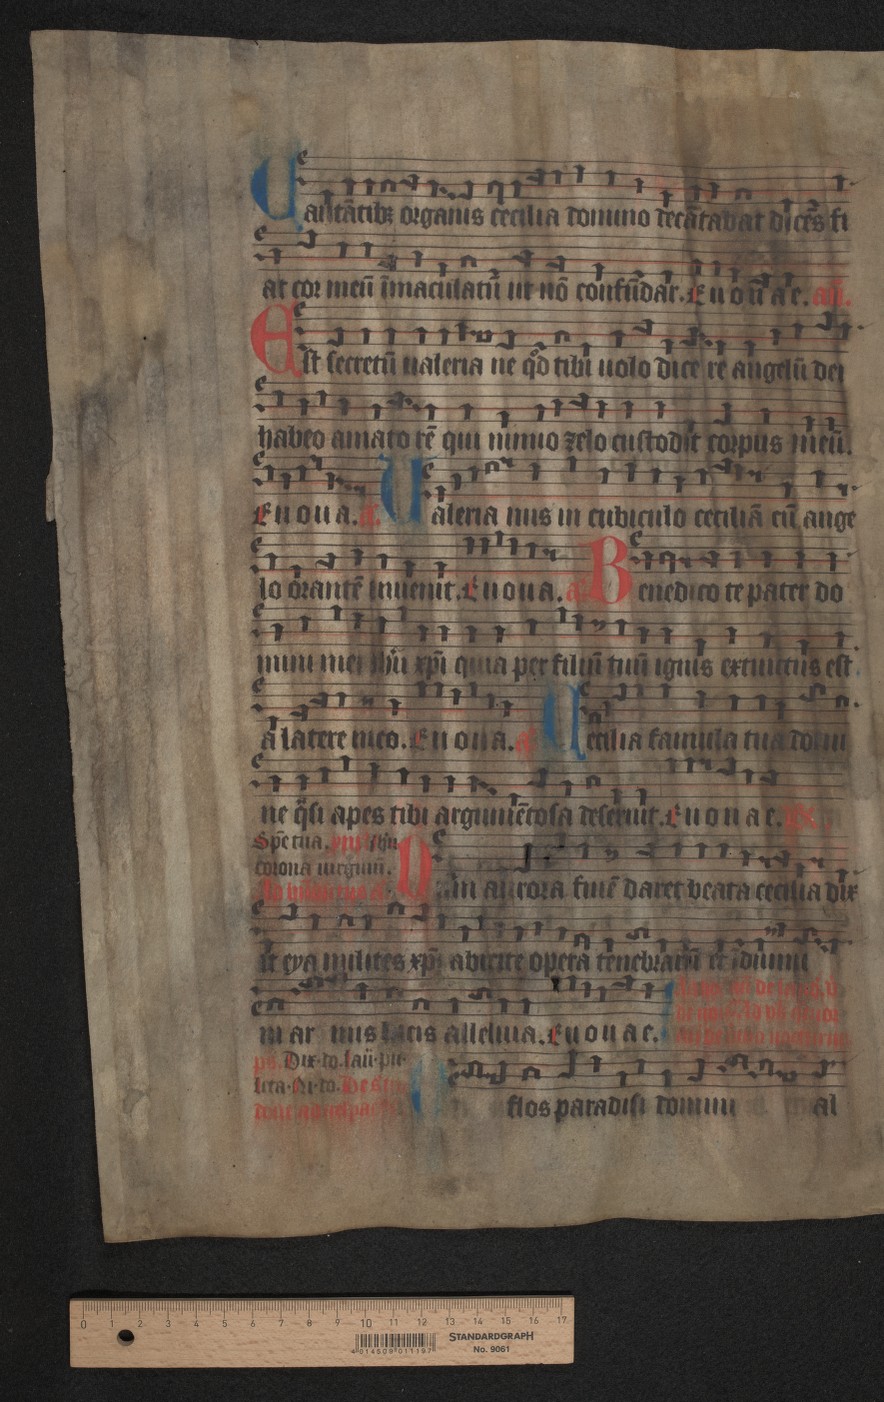 Cantātibꝫ organis cecilia domino decātabat dicēs fi
at cor meū īmaculatū ut nō confūdar. Euouae. añ.
Est secretū ualeria ne qd̄ tibi uolo dice re angelū dei
habeo amato rē qui nimio zelo custodit corpus meū.
Euoua. a. Valeria nus in cubiculo ceciliā cū ange
lo orantē inuenit. Euoua. a. Benedico te pater do
mini mei ihū xpi quia per filiū tuū ignis extinctus est
a latere meo. Euoua. a. Cecilia famula tua domi
ne q̄si apes tibi argumētosa deseruit. Euouae.
Spē tua. ihū
corona uirginū.
aurora finē daret beata cecilia dix
it eya milites xpi abicite opera tenebrarū et īduimi
m ar mis lucis alleluia. Euouae.
ps. Dix. do. laū. pu
flos paradisi domini al
0 1 2 3 4 5 6 7 8 9 10 11 12 13 14 15 16 17
4 014509 011197
STANDARDGRAPH
No. 9061